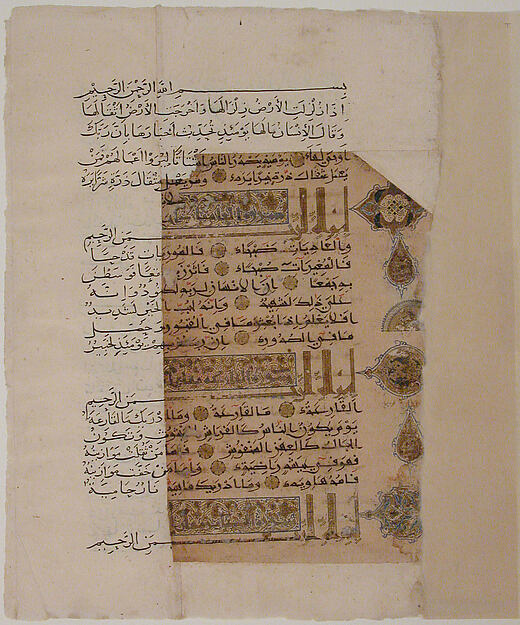 بسم الله الرحمن الرحيم
اذا زلزلت الارض زلزالها واخرجت الارض اثقالها
وقال الانسان مالها يومئذ تحدث اخبارها بان ربك
اوحى لها يومئذ يصدر الناس اشتاتا ليروا اعمالهم فمن
يعمل مثقال ذرة خيرا يره ومن يعمل مثقال ذرة شرا يره
ـمن الرحيم
والعاديات ضبحا فالموريات قدحا
فالمغيرات صبحا فاثرن به نقعا فوسطن
به جمعا ان الانسان لربه لكنود وانه
على ذلك لشهيد وانه لحب الخير لشديد
افلا يعلم اذا بعثر ما في القبور وحصل
ما في الصدور ان ربهم بهم يومئذ لخبير
ـمن الرحيم
القارعة ما القارعة وما ادريك ما القارعة
يوم يكون الناس كالفراش المبثوث وتكون
الجبال كالعهن المنفوش فاما من ثقلت موازينه
فهو في عيشة راضية واما من خفت موازينه
فامه هاوية وما ادريك ماهيه نار حامية
ـمن الرحيم